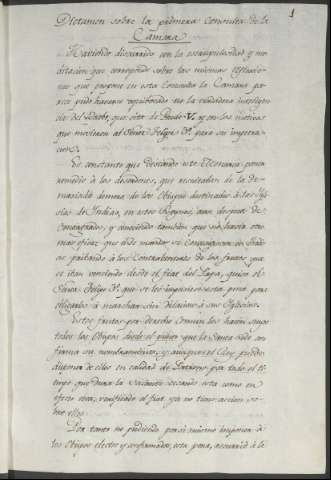 1
Dictamen sobre la primera Consulta de la
Camara
Haviendo discurrido con la escrupulosidad y me
ditacion que corresponde sobre las mismas reflexio-
nes que propone en esta Consulta la Camara pa-
rece pudo haverse equivocado en la verdadera inteligen
cia del Breve, que cita de Paulo V. y en los motivos
que movieron al Señor Felipe 3º para su impetra-
cion.
Es constante que deseando este Monarca poner
remedio à los desordenes, que resultaban de la de-
masiada demora de los Obispos destinados à las Igle
sias de Indias, en estos Reynos, aun despues de
Consagrados, y conociendo tambien que no havia otro
mas eficaz que
privando à los Contraventores de los frutos que
se iban venciendo desde el fiat del Papa, quiso el
Señor Felipe 3º que se les impusiese esta pena para
obligarlos à marchar sin dilacion à sus Iglesias.
Estos frutos por derecho Comun los hacen suyos
todos los Obispos desde el punto que la Santa Sede con
firma su nombramiento, y aunque el Rey puede
disponer de ellos en calidad de Patrono por todo el ti-
empo que dura la vacante cesando esta como en
efecto cesa, verificado el fiat ya no tiene accion so-
bre ellos.
Por tanto no pudiendo por si mismo imponer à
los Obispos electos y confirmados, esta pena, acudió à la